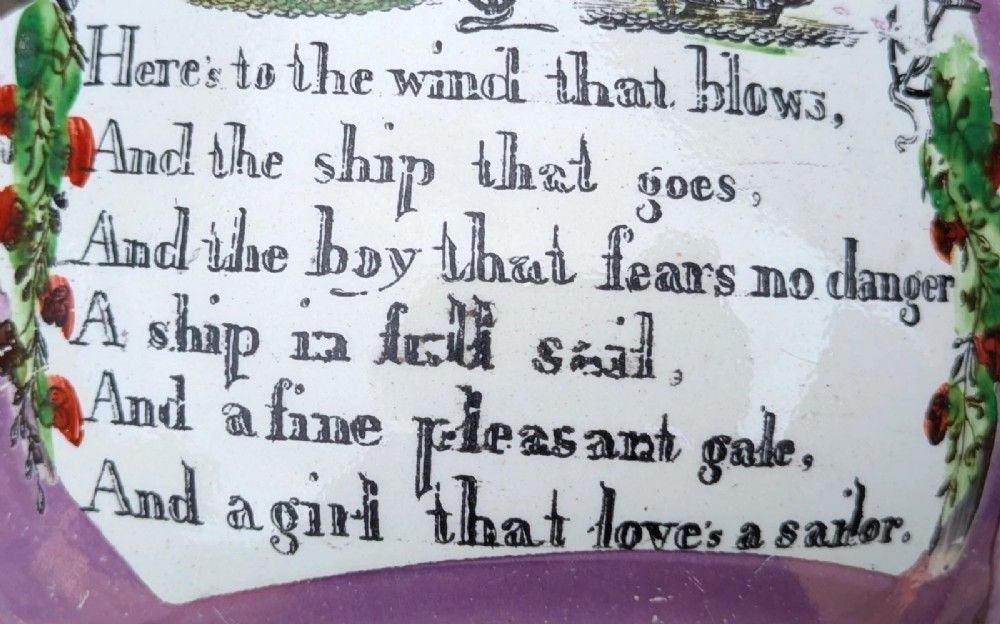 Here's to the wind that blows,
And the ship that goes,
And the boy that fears no danger
A ship in full sail,
And a fine pleasant gale,
And a girl that love's a sailor.